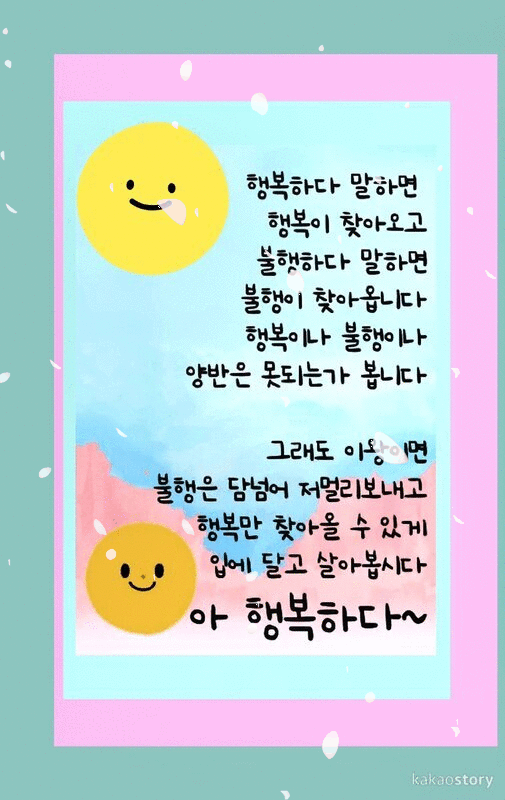 행복하다 말하면
행복이 찾아오고
불행하다 말하면
불행이 찾아옵니다
행복이나 불행이나
양반은 못되는가 봅니다
그래도 이왕이면
불행은 담넘어 저멀리보내고
행복만 찾아올 수 있게
입에 달고 살아봅시다
아 행복하다~
kakaostory